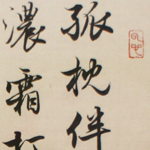 孤枕伴
濃霜打